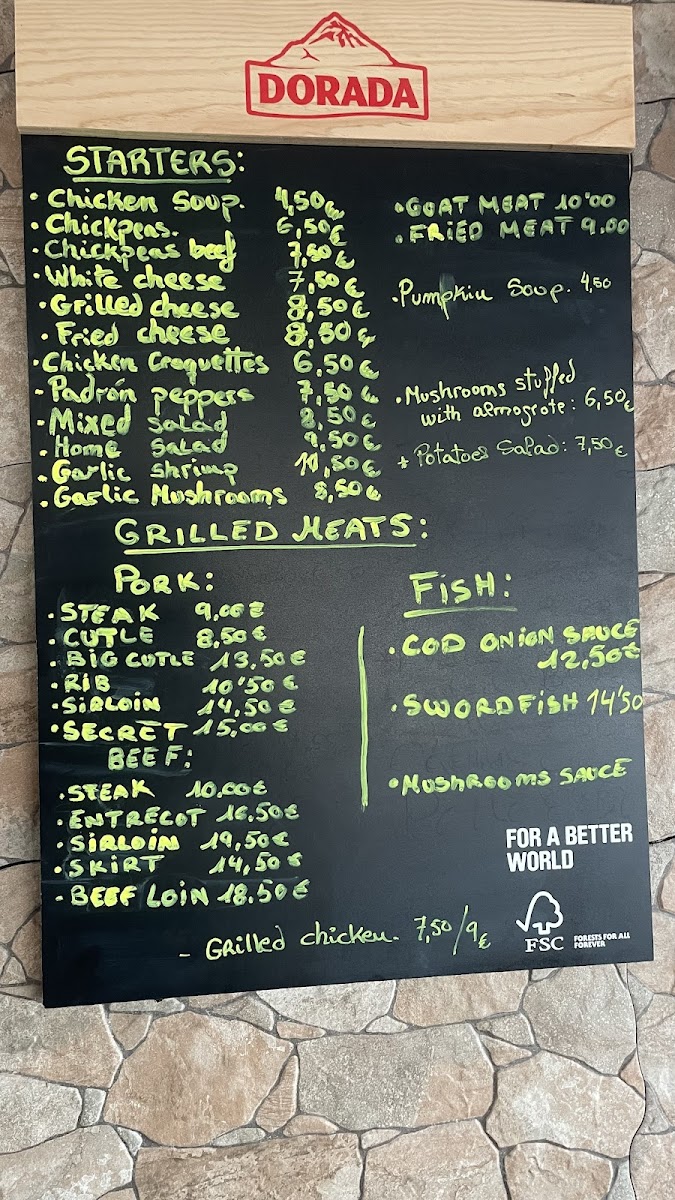 DORADA
STARTERS:
· Chicken Soup. 4,50€
· Chickpeas. 6,50€
· Chickpeas beef 7,50€
· White cheese 7,50€
· Grilled cheese 8,50€
· Fried cheese 8,50€
· Chicken Croquettes 6,50€
· Padrón peppers 7,50€
· Mixed salad 8,50€
· Home salad 9,50€
· Garlic shrimp 10,50€
· Garlic Mushrooms 8,50€
· GOAT MEAT 10'00
· FRIED MEAT 9.00
· Pumpkin Soup. 4,50
· Mushrooms stuffed
with almogrote: 6,50€
* Potatoes Salad: 7,50€
GRILLED MEATS:
PORK:
· STEAK 9,00€
· CUTLE 8,50€
· BIG CUTLE 13,50€
· RIB 10'50€
· SIRLOIN 14,50€
· SECRET 15,00€
BEEF:
· STEAK 10.00€
· ENTRECOT 16,50€
· SIRLOIN 19,50€
· SKIRT 14,50€
· BEEF LOIN 18.50€
FISH:
· COD ONION SAUCE
12,50€
· SWORDFISH 14'50
· MUSHROOMS SAUCE
- Grilled chicken. 7,50/9€
FOR A BETTER
WORLD
FSC
FORESTS FOR ALL
FOREVER